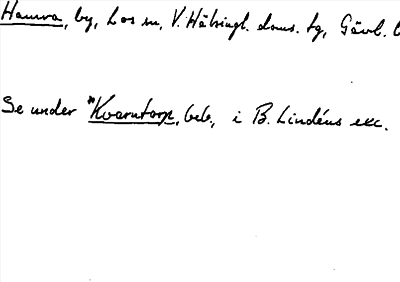 Hamra, by, Los sn, V. Hälsingl. doms. tg, Gävl. l
Se under *Kvarntorp, beb., i B. Lindéns exc.